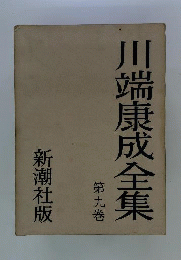 川端康成全集
第九巻
新潮社版